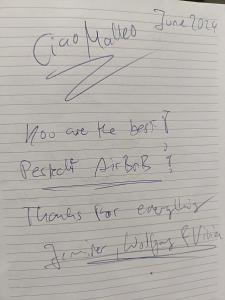 June 2024
Ciao Matteo
You are the best!
Perfect AirBnB!
Thanks for everything
Jennifer, Wolfgang & Vivien